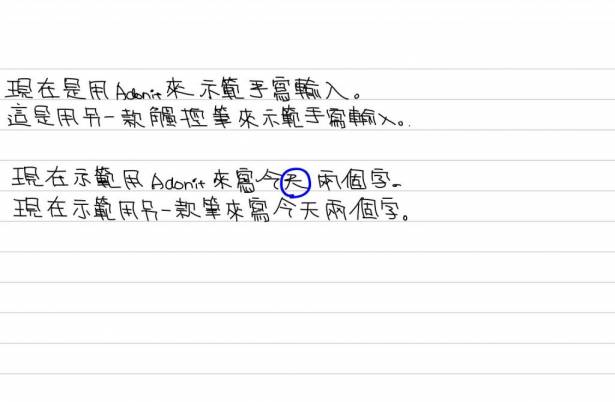 現在是用Adonit來示範手寫輸入。
這是用另一款觸控筆來示範手寫輸入。
現在示範用Adonit來寫今天兩個字。
現在示範用另一款筆來寫今天兩個字。